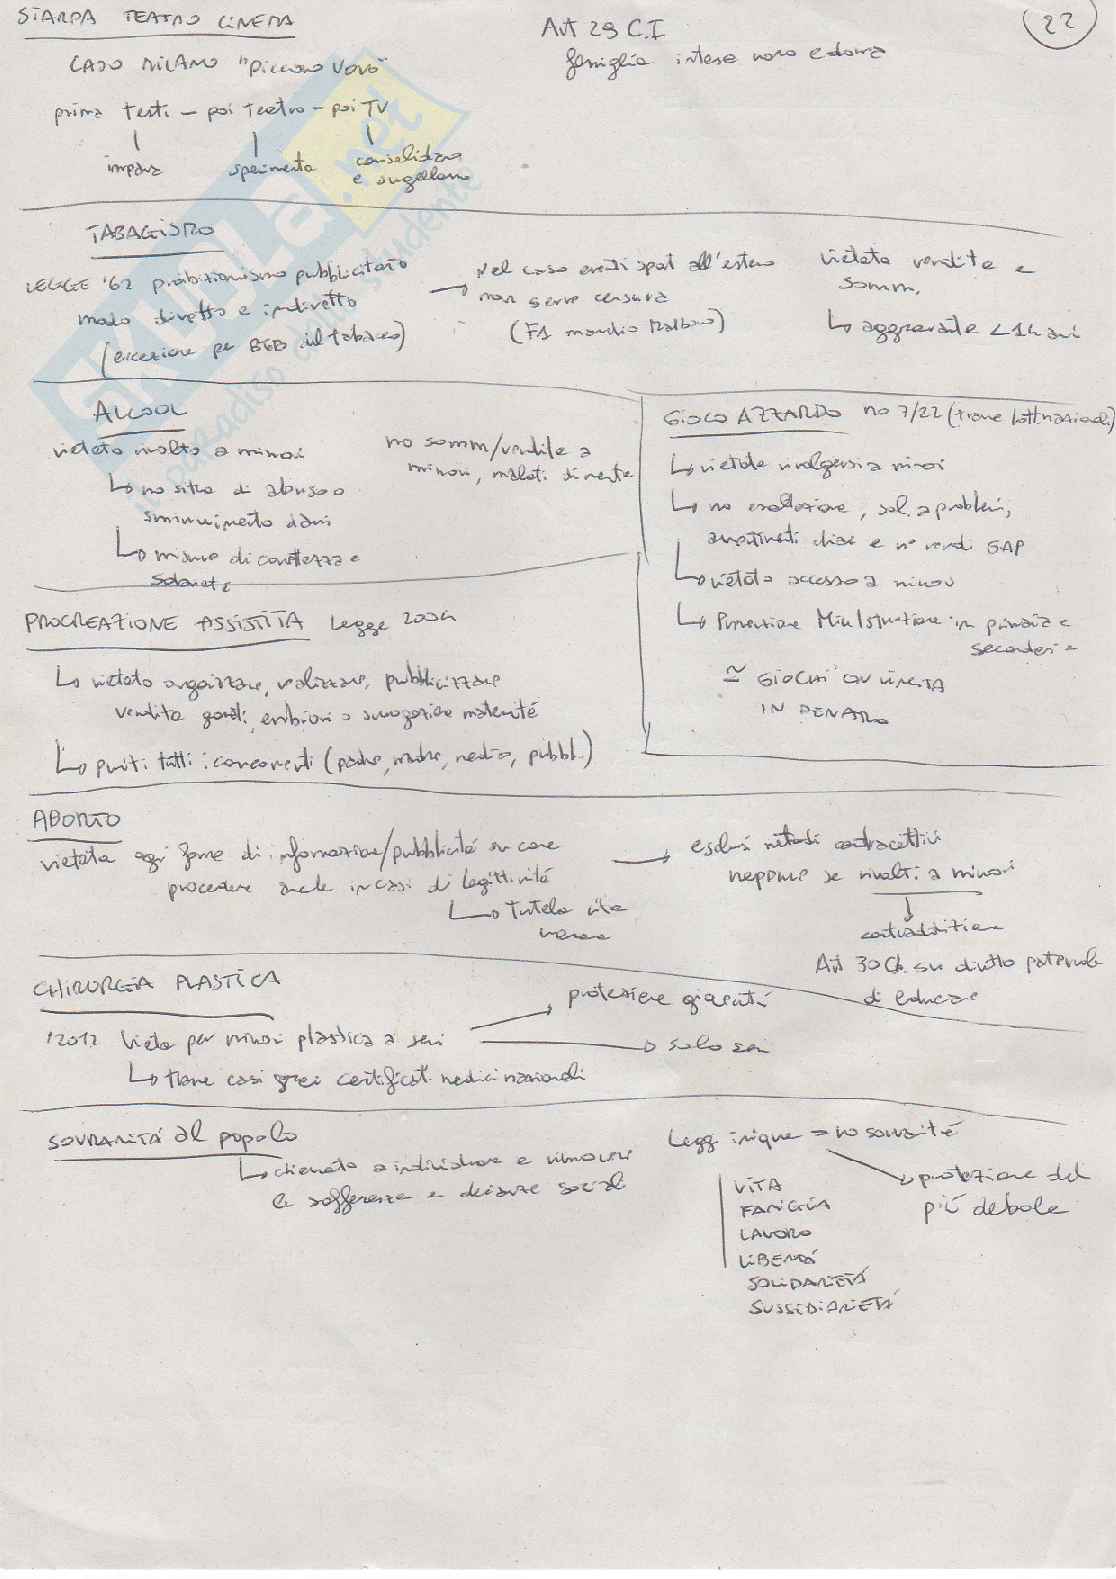 STAMPA TEATRO CINEMA
CASO MILANO "Piccolo Uovo"
prima testi - poi teatro - poi TV
impara
sperimenta
consolidano
e suggellano
Art 29 C.I
famiglia intesa uomo e donna
22
TABAGISMO
LEGGE '62 proibizionismo pubblicitario
modo diretto e indiretto
(eccezione per B2B del tabacco)
Nel caso eventi sport all'estero
non serve censura
(F1 marchio Malboro)
vietata vendita e
somm.
aggravante <14 anni
ALCOOL
vietato rivolto a minori
no situa di abuso o
sminuimento danni
misure di correttezza e
sobrietà
no somm/vendita a
minori, malati di mente
GIOCO AZZARDO no 7/22 (tranne lott nazionali)
vietate rivolgersi a minori
no esaltazione, sol. a problemi,
avvertimenti chiari e no rendi GAP
vietato accesso a minori
Prevenzione Min Istruzione in primaria e
secondaria
≃ GIOCHI CON VINCITA
IN DENARO
PROCREAZIONE ASSISTITA Legge 2004
vietato organizzare, realizzare, pubblicizzare
vendita gameti, embrioni o surrogazione maternità
puniti tutti i concorrenti (padre, madre, medico, pubbl.)
ABORTO
vietata ogni forma di informazione/pubblicità su come
procedere anche in casi di legittimità
tutela vita
umana
esclusi metodi contraccettivi
neppure se rivolti a minori
contraddizione
Art 30 Ci. su diritto paternale
di educare
CHIRURGIA PLASTICA
'2012 Vieta per minori plastica a seni
tranne casi gravi certificati medici nazionali
protezione gioventù
solo seni
SOVRANITÀ al popolo
chiamato a individuare e rimuovere
le sofferenze e devianze sociali
Leggi inique → no sovranità
protezione del
più debole
VITA
FAMIGLIA
LAVORO
LIBERTÀ
SOLIDARIETÀ
SUSSIDIARIETÀ
skuola.net
il paradiso dello studente